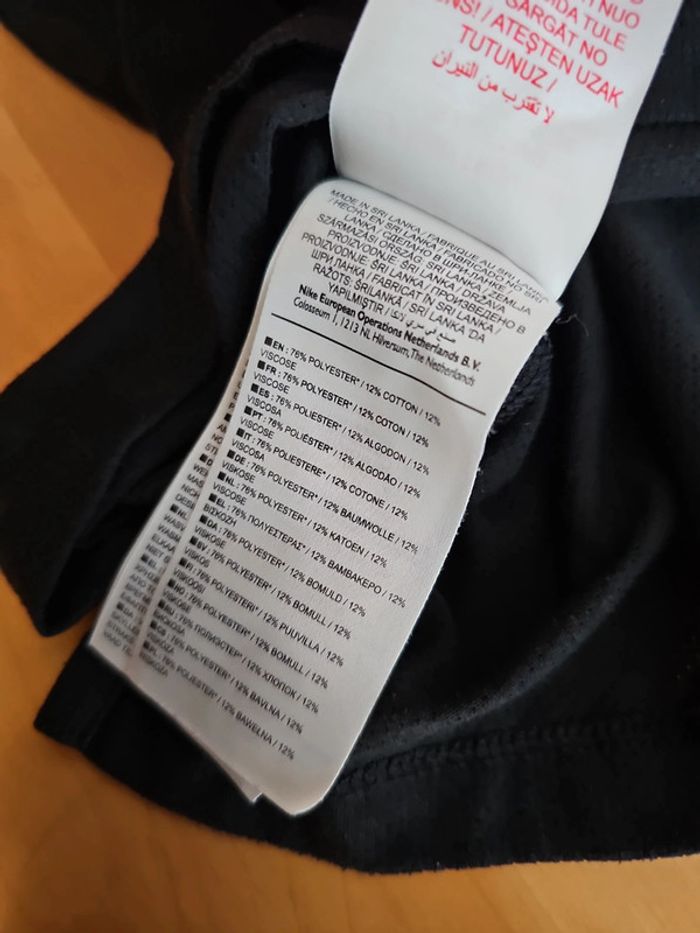 NUO
TULE
SARGĀT NO
ENS! / ATEŞTEN UZAK
TUTUNUZ /
لا تقترب من النيران
MADE IN SRI LANKA / FABRIQUE AU SRI LANKA
/ HECHO EN SRI LANKA / FABRICADO NO SRI
LANKA / СДЕЛАНО В ШРИ-ЛАНКЕ /
SZÁRMAZÁSI ORSZÁG: SRI LANKA / ZEMLJA
PROIZVODNJE: SRI LANKA / DRŽAVA
PROIZVODNJE: ŠRI LANKA / ПРОИЗВЕДЕНО В
ШРИ ЛАНКА / FABRICAT ÎN SRI LANKA /
RAŽOTS: ŠRILANKĀ / SRI LANKA 'DA
YAPILMIŞTIR / صنع في سري لانكا
Nike European Operations Netherlands B. V.
Colosseum 1, 1213 NL Hilversum, The Netherlands
EN : 76% POLYESTER* / 12% COTTON / 12%
VISCOSE
FR : 76% POLYESTER* / 12% COTON / 12%
VISCOSE
ES : 76% POLIÉSTER* / 12% ALGODON / 12%
VISCOSA
PT : 76% POLIÉSTER* / 12% ALGODÃO / 12%
VISCOSE
IT : 76% POLIESTERE* / 12% COTONE / 12%
VISCOSA
DE : 76% POLYESTER* / 12% BAUMWOLLE / 12%
VISKOSE
NL : 76% POLYESTER* / 12% KATOEN / 12%
VISCOSE
EL : 76% ΠΟΛΥΕΣΤΕΡΑΣ* / 12% ΒΑΜΒΑΚΕΡΟ / 12%
ΒΙΣΚΟΖΗ
DA : 76% POLYESTER* / 12% BOMULD / 12%
VISKOSE
SV : 76% POLYESTER* / 12% BOMULL / 12%
VISKOS
FI : 76% POLYESTERI* / 12% PUUVILLA / 12%
VISKOOSI
NO : 76% POLYESTER* / 12% BOMULL / 12%
VISKOSE
RU : 76% ПОЛИЭСТЕР* / 12% ХЛОПОК / 12%
ВИСКОЗА
CS : 76% POLYESTER* / 12% BAVLNA / 12%
VISKÓZA
PL : 76% POLIESTER* / 12% BAWEŁNA / 12%
WISKOZA